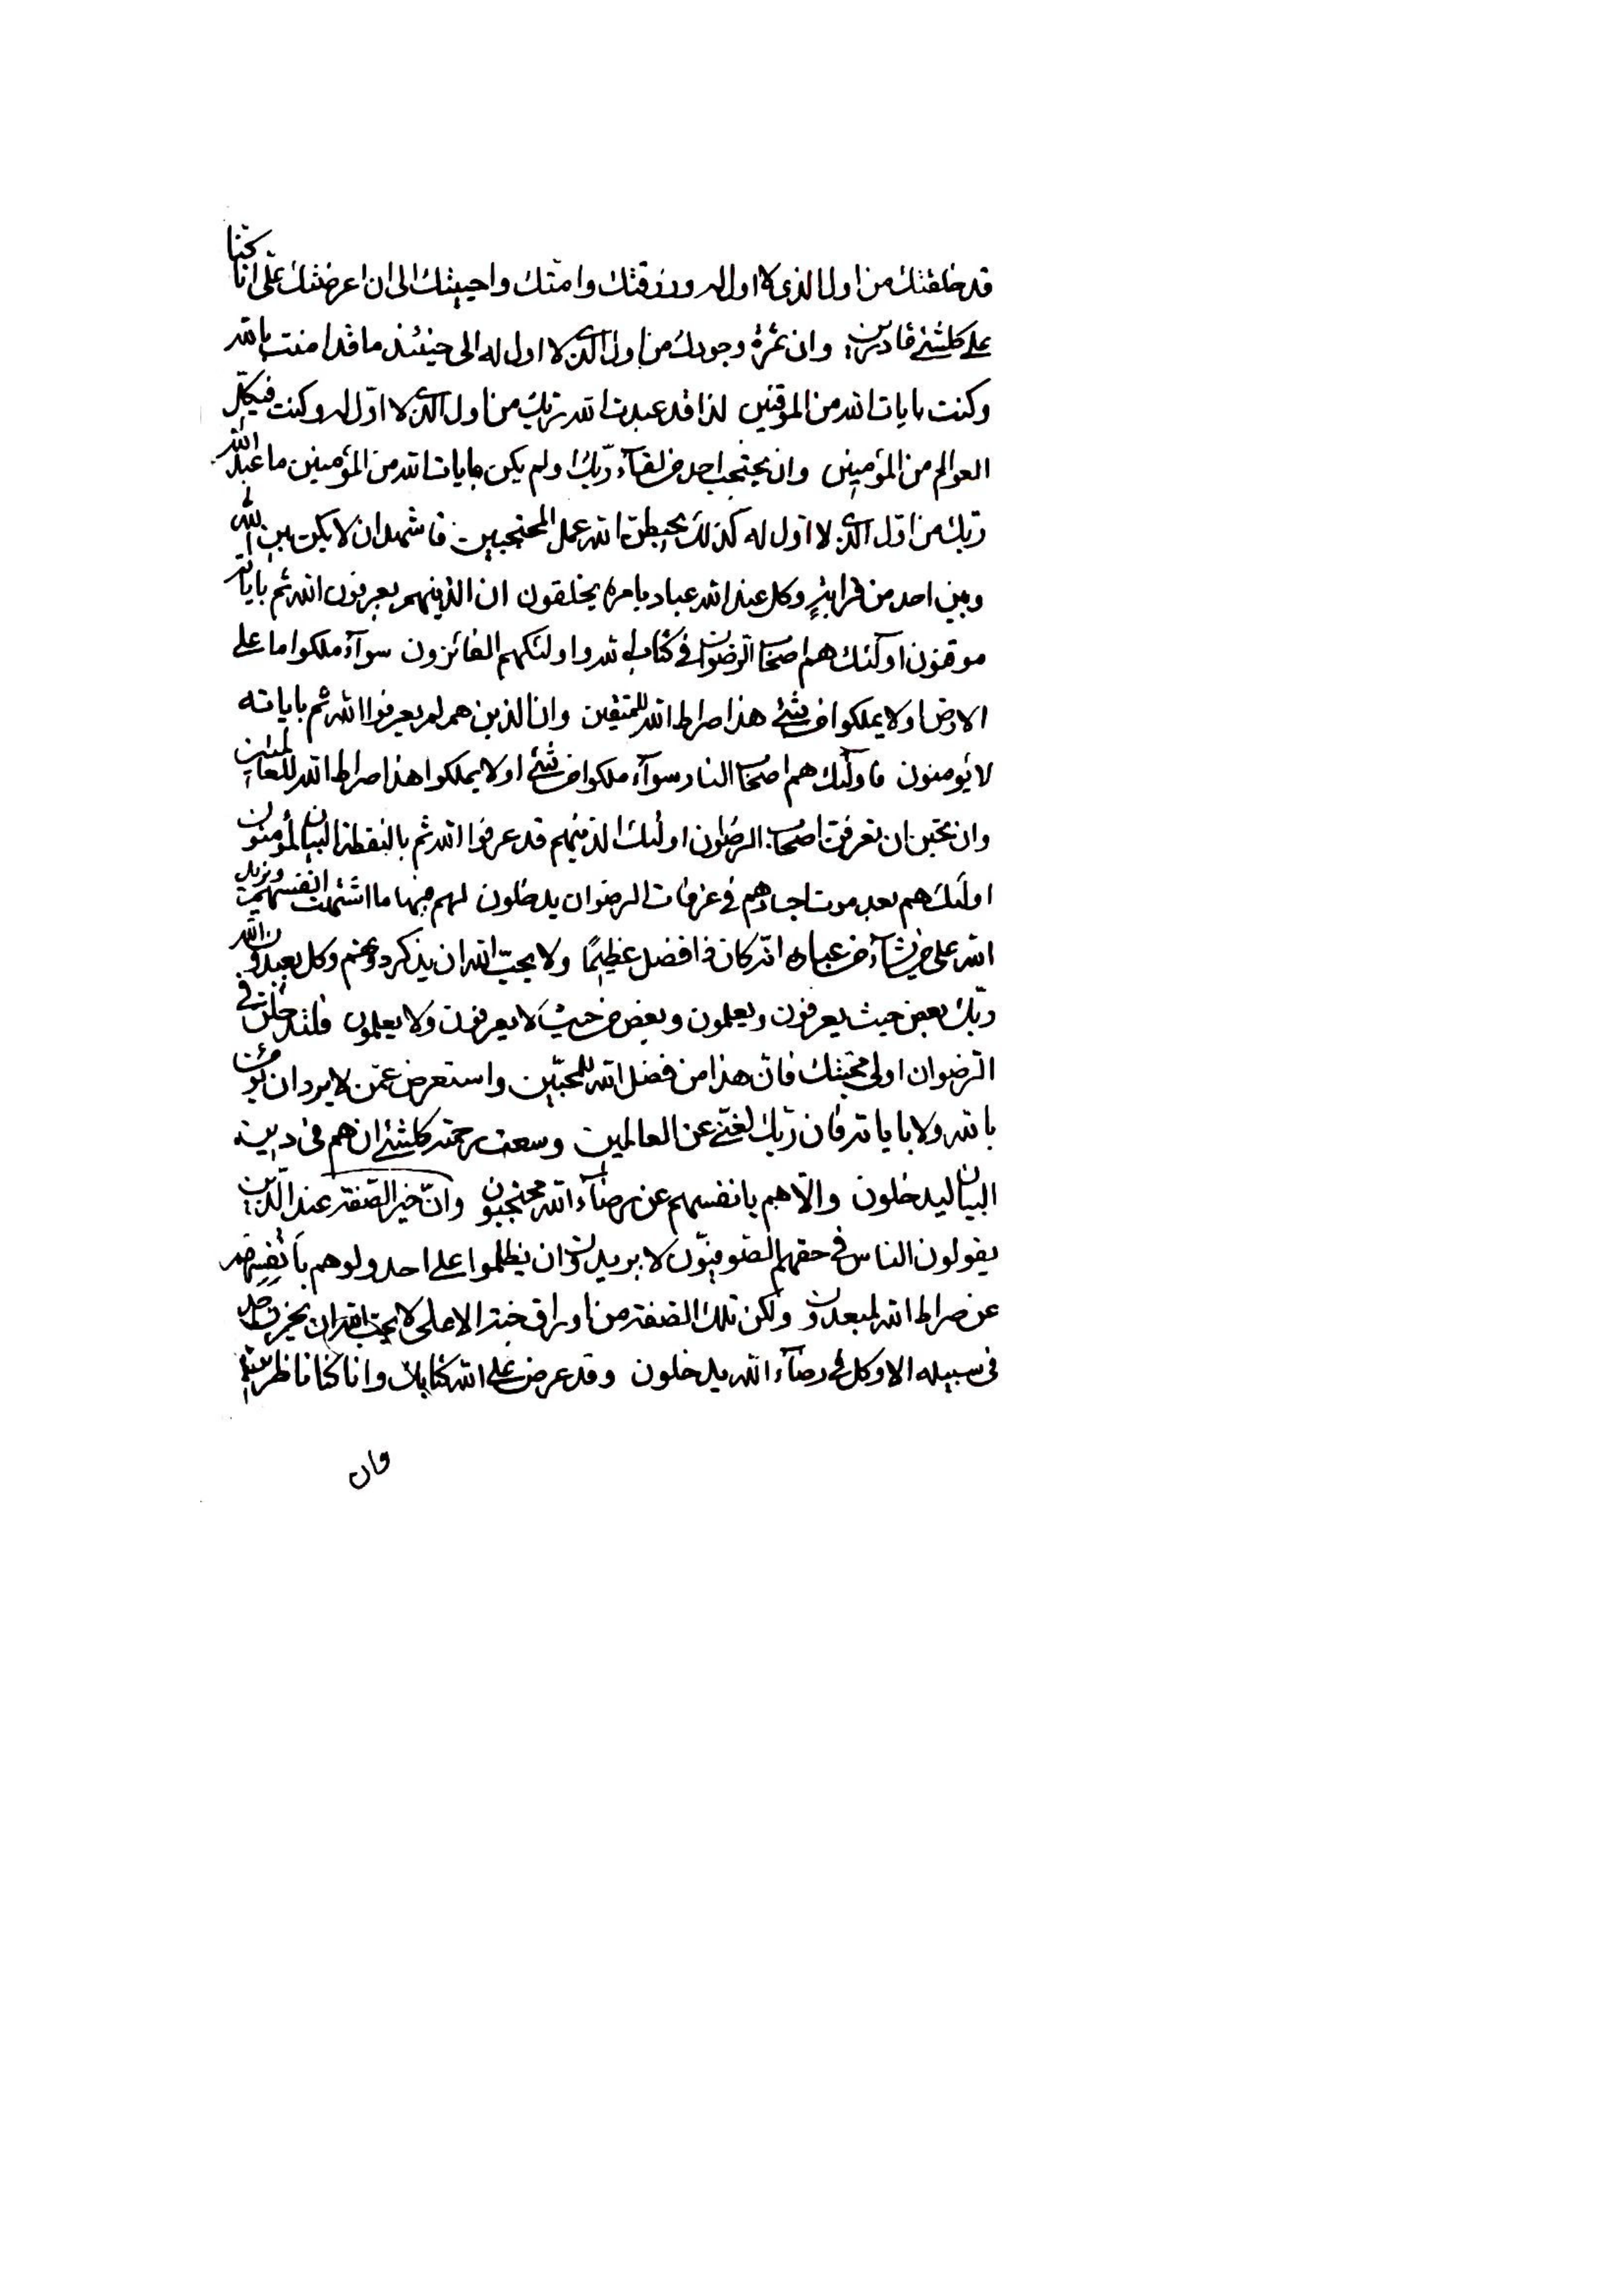 قد خلقتك من اول الذى لا اول له ورزقتك وامتك واحييتك الى ان اعرضتك على انا كنا
على كلشئ قادرين وان ثمرة وجودك من اول الذى لا اول له الى حينئذ ما قد امنت بالله
وكنت بايات الله من الموقنين لذا قد عبدت الله ربك من اول الذى لا اول له وكنت فى كل
العوالم من المؤمنين وان يحتجب احد من لقاء ربك ولم يكن بايات الله من المؤمنين ما عبد الله
ربك من اول الذى لا اول له كذلك يحبطن الله عمل المحتجبين فاشهد ان لا يكن بين الله
وبين احد من قرابة وكل عند الله عباد بامره يخلقون ان الذينهم يعرفون الله ثم باياته
موقنون اولئك هم اصحاب الرضوان فى كتاب الله واولئكهم الفائزون سوآء ملكوا ما على
الارض او لا يملكوا من شئ هذا صراط الله للمتقين وان الذين هم لم يعرفوا الله ثم باياته
لا يؤمنون فاولئك هم اصحاب النار سوآء ملكوا من شئ او لا يملكوا هذا صراط الله للعالمين
وان تحبن ان تعرفن اصحاب الرضوان اولئك الذينهم قد عرفوا الله ثم بالنقطة البيان لمؤمنون
اولئك هم بعد موت اجسادهم فى غرفات الرضوان يدخلون لهم فيها ما اشتهت انفسهم ويزيدن
الله على من يشآء من عباده انه كان ذا فضل عظيما ولا يحب الله ان يذكر دونهم وكل يعبدون الله
ربك بعض حيث يعرفون ويعلمون وبعض من حيث لا يعرفون ولا يعلمون فلتدخلن فى
الرضوان اولى محبتك فان هذا من فضل الله للمحبين واستعرض عمن لا يرد ان يؤمن
بالله ولا باياته فان ربك لغنى عن العالمين وسعت رحمته كلشئ ان هم فى دين
البيان ليدخلون والا هم بانفسهم عن رضآء الله محتجبون وان خير الصنفة عند الذين
يقولون الناس فى حقهم الصوفيون لا يريدون ان يظلموا على احد ولو هم بانفسهم
عن صراط الله لمبعدون ولكن تلك الصنفة من اوراق جنة الاعلى لا يحب الله ان يحزن احد
فى سبيله الا وكل فى رضآء الله يدخلون وقد عرض على الله كتابك وانا كنا ناظرين
وان